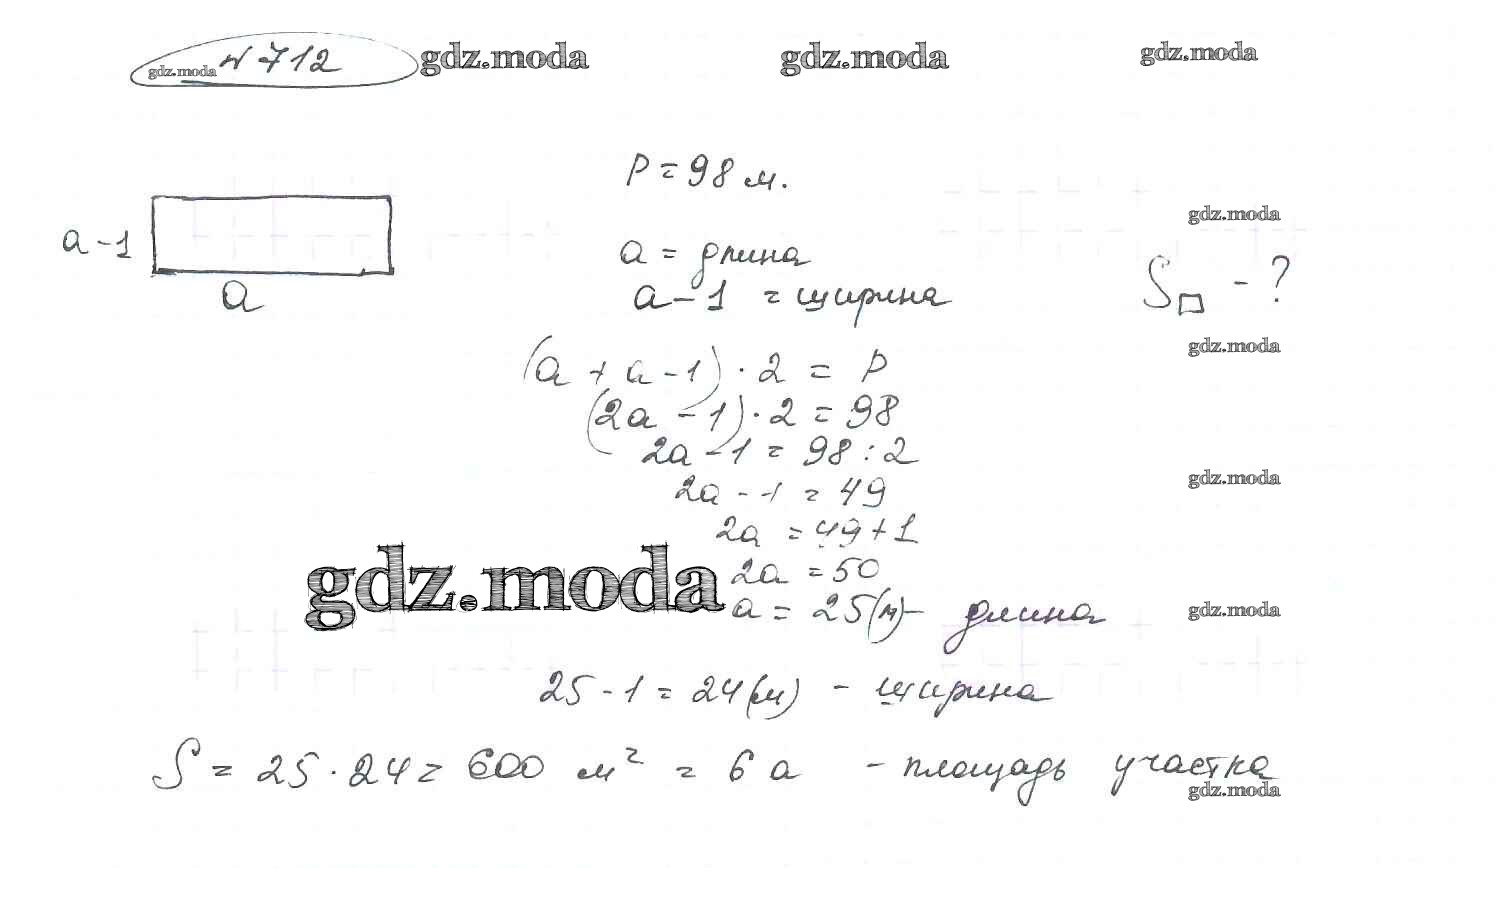 № 712 gdz.moda gdz.moda gdz.moda gdz.moda
P = 98 м.
gdz.moda
a - 1
a = длина
a
a - 1 = ширина
S□ - ?
gdz.moda
(a + a - 1) · 2 = P
(2a - 1) · 2 = 98
2a - 1 = 98 : 2
gdz.moda
2a - 1 = 49
2a = 49 + 1
gdz.moda
2a = 50
a = 25(м) - длина
gdz.moda
25 - 1 = 24(м) - ширина
S = 25 · 24 = 600 м² = 6 a - площадь участка
gdz.moda